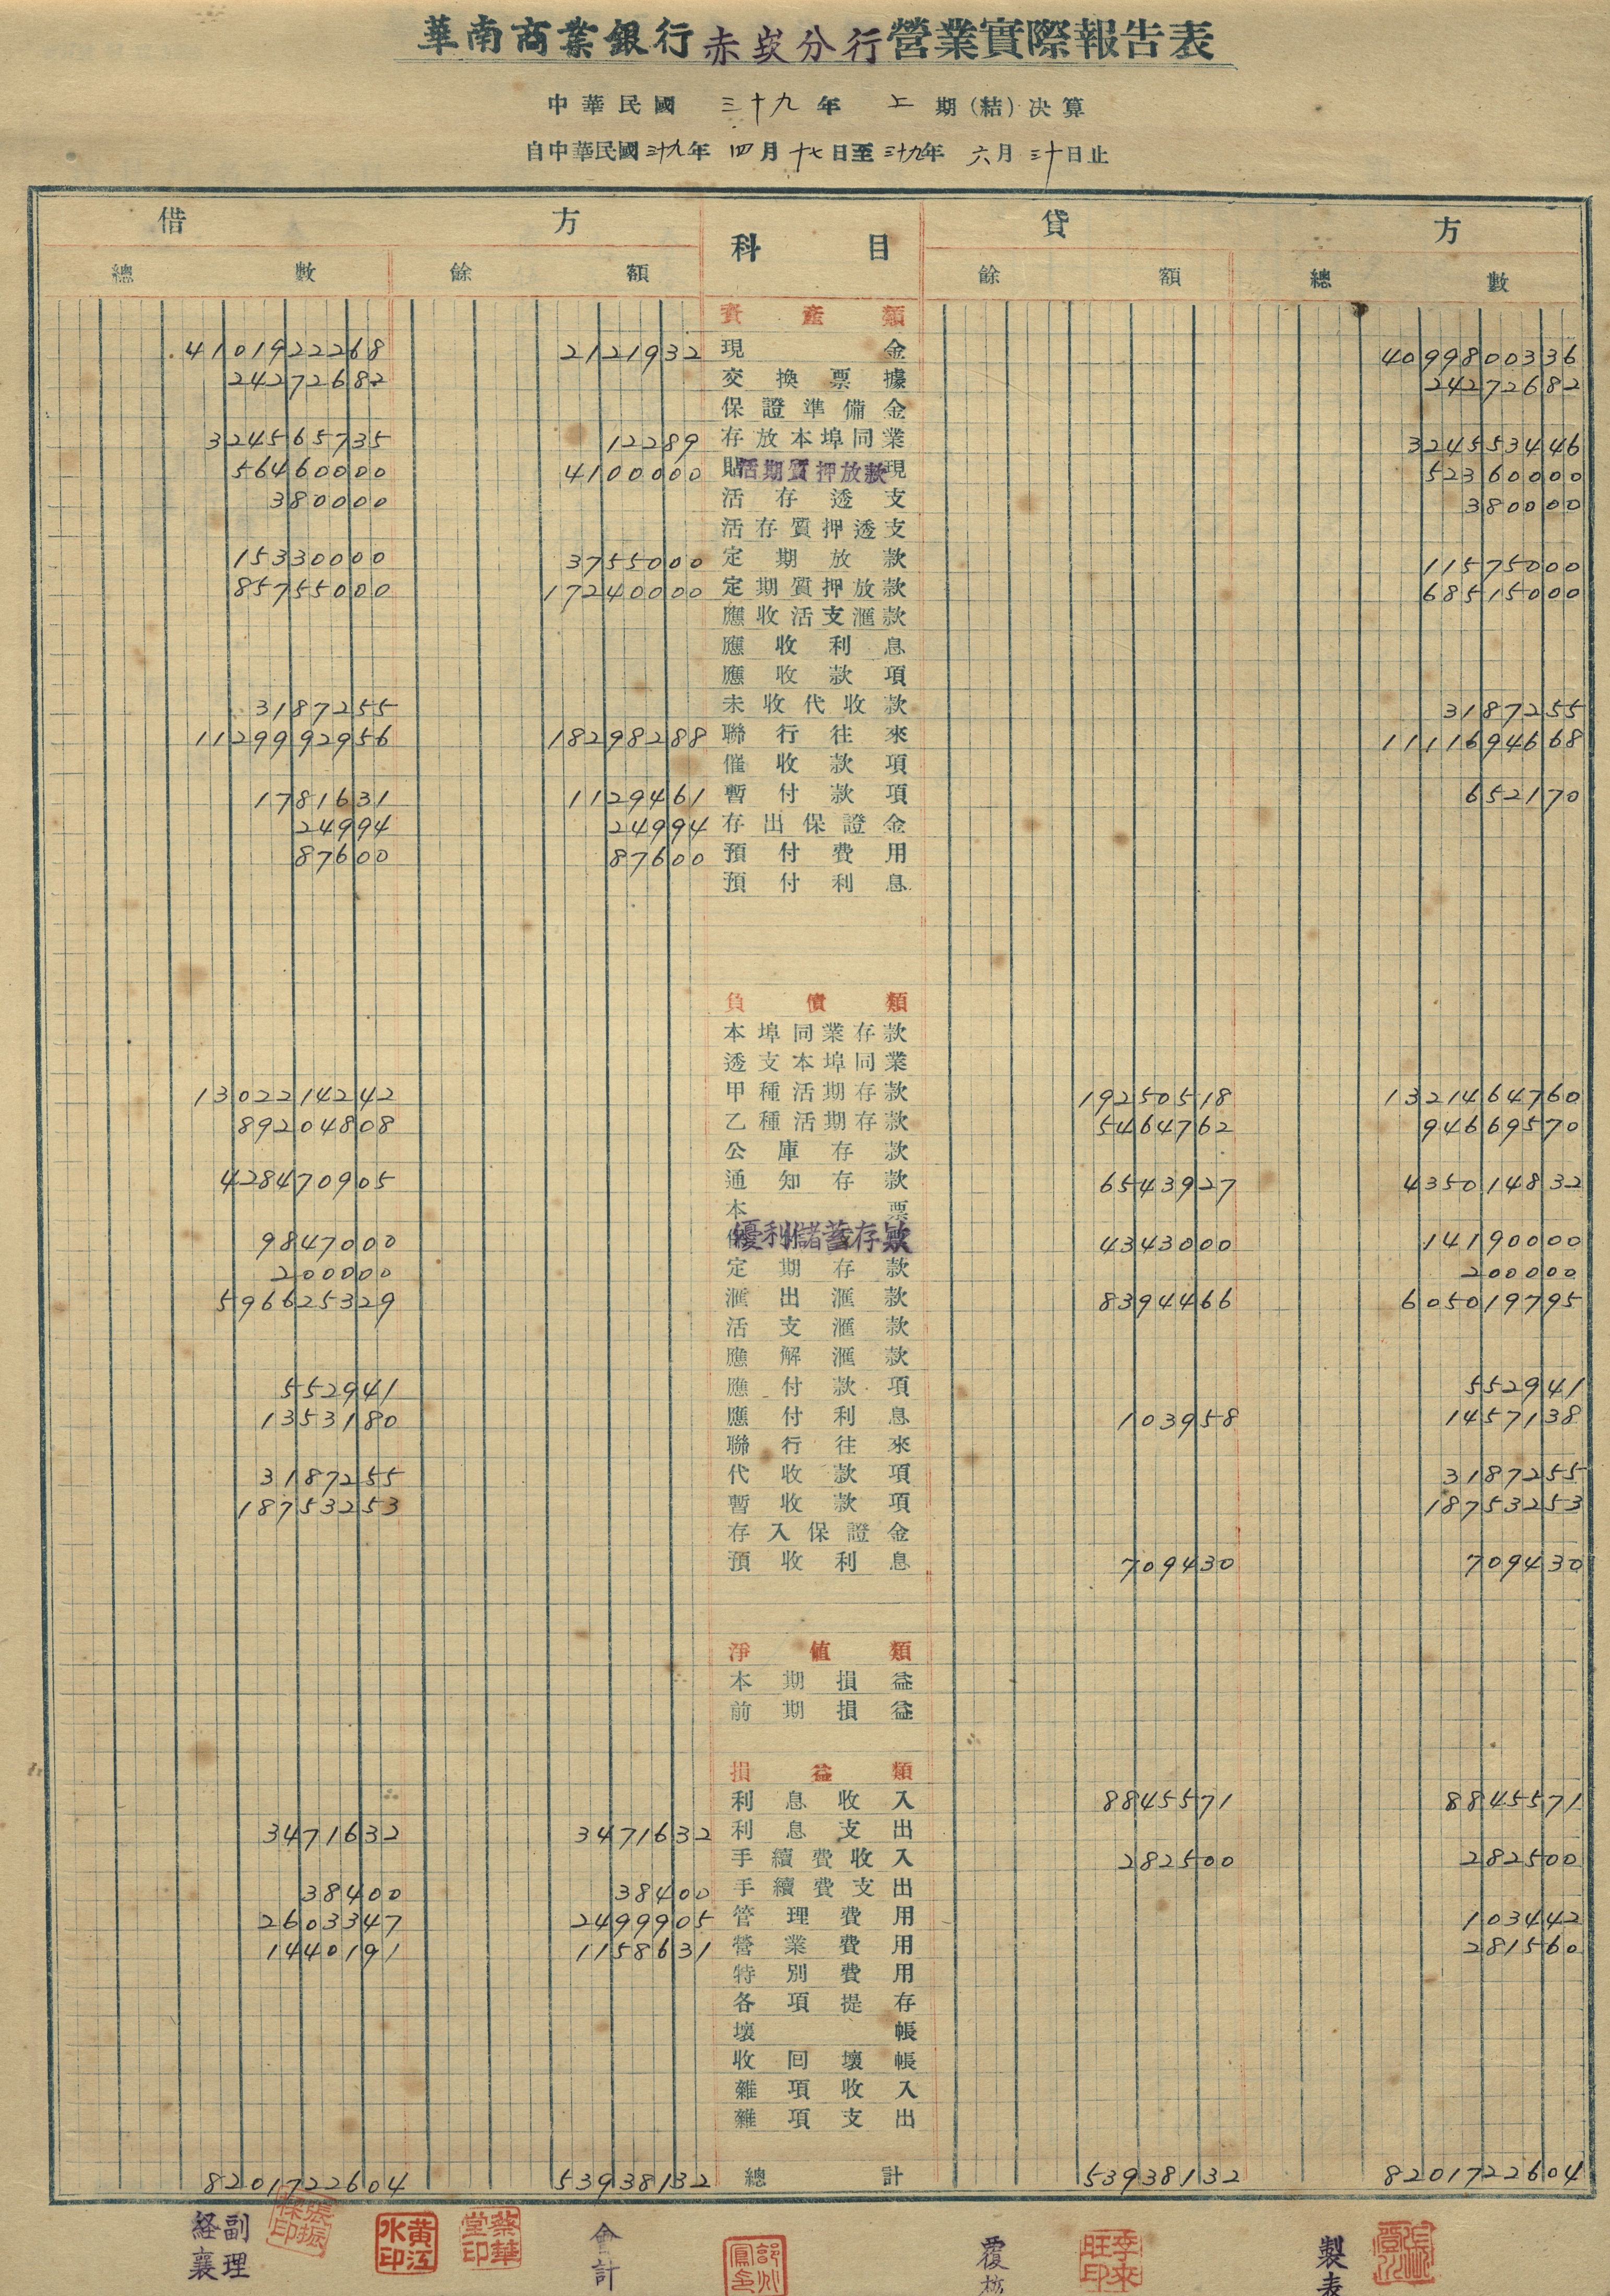 華南商業銀行赤崁分行營業實際報告表
中華民國 三十九 年 上 期(結)決算
自中華民國三十九年 四月十七日至三十九年 六月三十日止
借 方 科 目 貸 方
總 數 餘 額 餘 額 總 數
資產類
4101922268 2121932 現金 4099800336
24272682 交換票據 24272682
保證準備金
324565735 12289 存放本埠同業 324553446
56460000 4100000 貼現 活期質押放款 52360000
380000 活存透支 380000
活存質押透支
15330000 3755000 定期放款 11575000
85755000 17240000 定期質押放款 68515000
應收活支滙款
應收利息
應收款項
3187255 未收代收款 3187255
1129992956 18298288 聯行往來 1111694668
催收款項
1781631 1129461 暫付款項 652170
24994 24994 存出保證金
87600 87600 預付費用
預付利息
負債類
本埠同業存款
透支本埠同業
1302214242 甲種活期存款 19250518 1321464760
89204808 乙種活期存款 5464762 94669570
公庫存款
428470905 通知存款 6543927 435014832
本票
9847000 優利儲蓄存款 4343000 14190000
200000 定期存款 200000
596625329 滙出滙款 8394466 605019795
活支滙款
應解滙款
552941 應付款項 552941
1353180 應付利息 103958 1457138
聯行往來
3187255 代收款項 3187255
18753253 暫收款項 18753253
存入保證金
預收利息 709430 709430
淨值類
本期損益
前期損益
損益類
利息收入 8845571 8845571
3471632 3471632 利息支出
手續費收入 282500 282500
38400 38400 手續費支出
2603347 2499905 管理費用 103442
1440191 1158631 營業費用 281560
特別費用
各項提存
壞帳
收回壞帳
雜項收入
雜項支出
8201722604 53938132 總計 53938132 8201722604
経襄 副理 張振標印 黃江水印 蔡華堂印 會計 覆核 李來旺印 製表